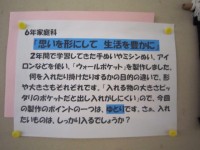 6年家庭科
「思いを形にして 生活を豊かに」
2年間で学習してきた手ぬいやミシンぬい、アイ
ロンなどを使い、「ウォールポケット」を製作しました。
何を入れたり掛けたりするかの目的の違いで、形
や大きさもそれぞれです。「入れる物の大きさピッ
タリのポケットだと出し入れがしにくい」ので、今回
の製作のポイントの一つは、ゆとりです。さぁ、入れ
たいものは、しっかり入るでしょうか？